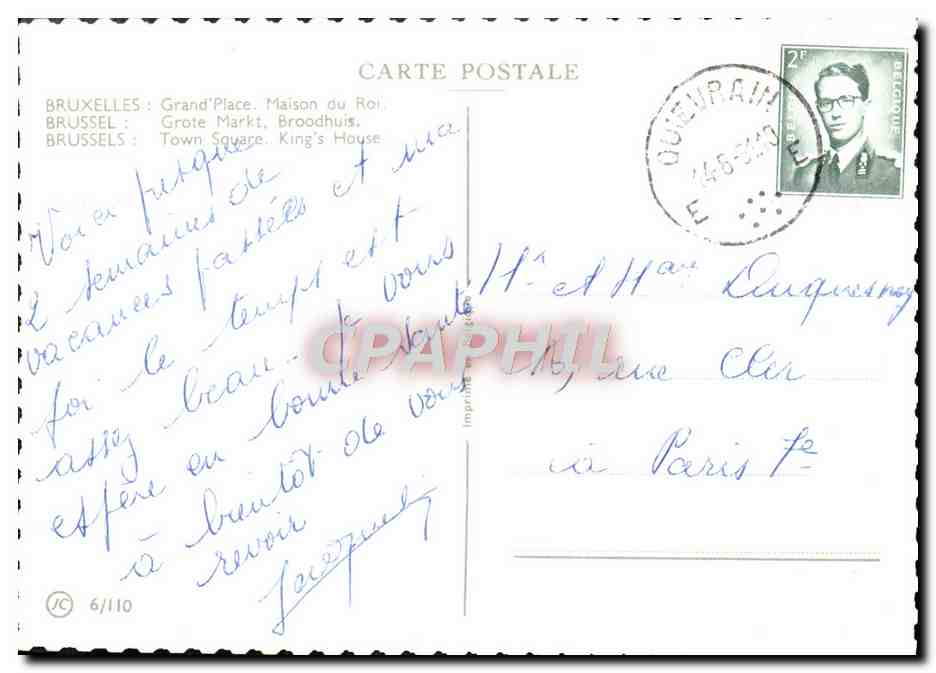 CARTE POSTALE
BRUXELLES : Grand'Place. Maison du Roi.
BRUSSEL : Grote Markt, Broodhuis.
BRUSSELS : Town Square. King's House
Voici presque
2 semaines de
vacances passées et ma
foi le temps est
assez beau. Je vous
espère en bonne santé
à bientôt de vous
revoir
JC 6/110
Imprimé en Belgique
CPAPHIL
QUIEVRAIN
E E
2F
BELGIQUE
Mr et Mme Duquesnoy
16, rue Cler
à Paris 7e